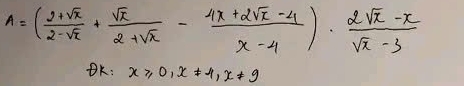 A = ( \frac{2+\sqrt{x}}{2-\sqrt{x}} + \frac{\sqrt{x}}{2+\sqrt{x}} - \frac{4x+2\sqrt{x}-4}{x-4} ) . \frac{2\sqrt{x}-x}{\sqrt{x}-3}
ĐK: x ⩾ 0, x ≠ 4, x ≠ 9